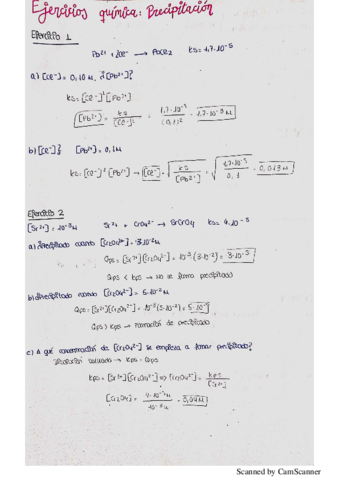 Ejercicios química: Precipitación
Ejercicio 1
Pb²⁺ + 2Cl⁻ → PbCl₂ Ks = 1,7·10⁻⁵
a) [Cl⁻] = 0,10 M, ¿[Pb²⁺]?
Ks = [Cl⁻]² [Pb²⁺]
[Pb²⁺] = Ks / [Cl⁻]² = 1,7·10⁻⁵ / (0,1)² = 1,7·10⁻³ M
b) [Cl⁻]? [Pb²⁺] = 0,1M
Ks = [Cl⁻]² [Pb²⁺] → [Cl⁻] = √(Ks / [Pb²⁺]) = √(1,7·10⁻⁵ / 0,1) = 0,013 M
Ejercicio 2
[Sr²⁺] = 10⁻³ M Sr²⁺ + CrO₄²⁻ → SrCrO₄ Ks = 4·10⁻⁵
a) ¿precipitado cuando [Cr₂O₄²⁻] = 3·10⁻² M
Qps = [Sr²⁺][Cr₂O₄²⁻] = 10⁻³ (3·10⁻²) = 3·10⁻⁵
Qps < Kps → No se forma precipitado
b) ¿precipitado cuando [Cr₂O₄²⁻] = 5·10⁻² M
Qps = [Sr²⁺][Cr₂O₄²⁻] = 10⁻³ (5·10⁻²) = 5·10⁻⁵
Qps > Kps → formación de precipitado
c) A qué concentración de [Cr₂O₄²⁻] se empieza a formar precipitado?
→ Kps = Qps
Kps = [Sr²⁺][Cr₂O₄²⁻] ⇒ [Cr₂O₄²⁻] = Kps / [Sr²⁺]
[Cr₂O₄] = 4·10⁻⁵ M / 10⁻³ M = 0,04 M
Scanned by CamScanner